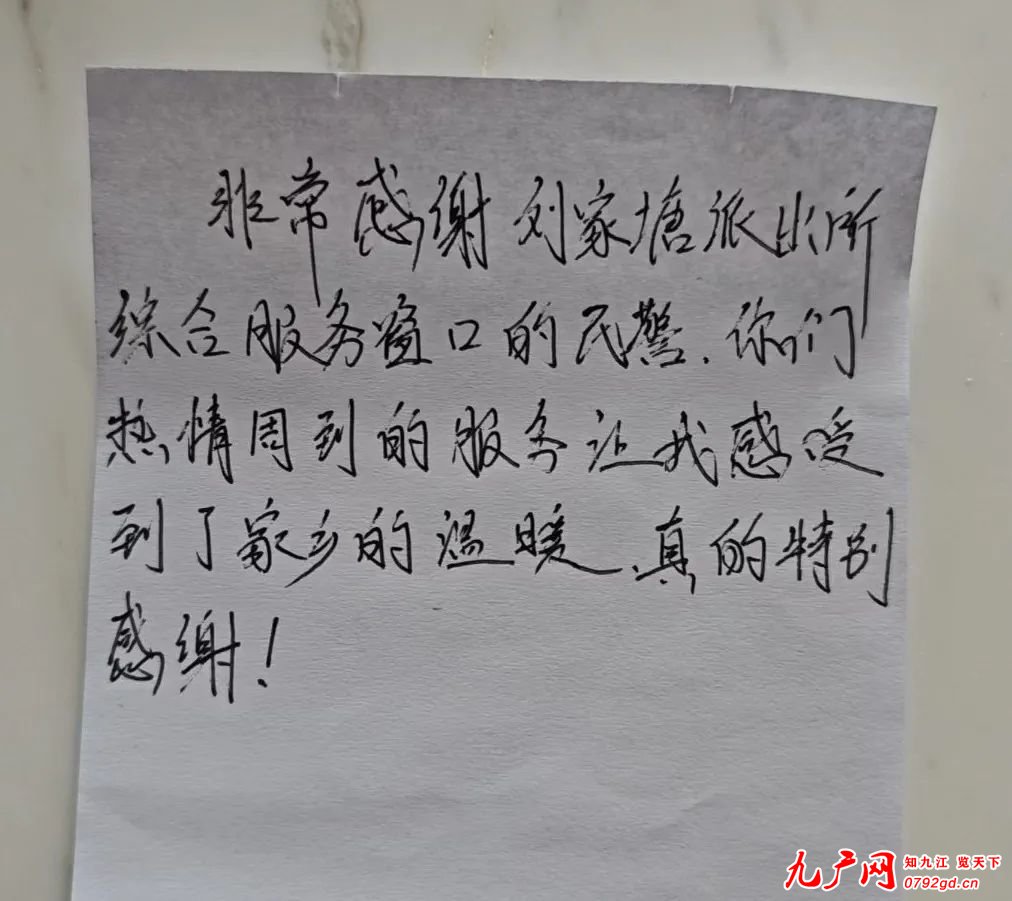 非常感谢刘家塘派出所
综合服务窗口的民警.你们
热情周到的服务让我感受
到了家乡的温暖.真的特别
感谢!
九广网 知九江 览天下
0792gd.cn